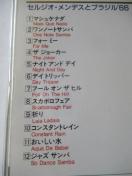 セルジオ・メンデスとブラジル'66
1 マシュケナダ
Mais Que Nada
2 ワンノートサンバ
One Note Samba
3 フォー ミー
For Me
4 ザ ジョーカー
The Joker
5 ナイト アンド デイ
Night And Day
6 デイトリッパー
Day Tripper
7 フール オン ザ ヒル
Fool On The Hill
8 スカボロフェア
Scarborough Fair
9 祈り
Laia Ladaia
10 コンスタントレイン
Constant Rain
11 おいしい水
Agua De Beber
12 ジャズ サンバ
So Danco Samba